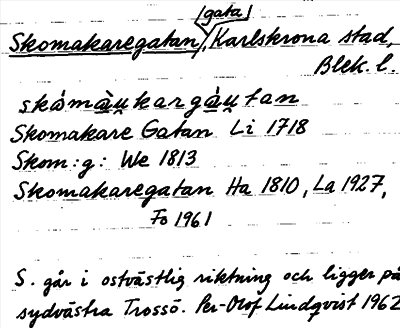 (gata)
Skomakaregatan, Karlskrona stad,
Blek. l.
skómàu̯kargáu̯tan
Skomakare Gatan Li 1718
Skom:g: We 1813
Skomakaregatan Ha 1810, La 1927,
Fo 1961
S. går i ostvästlig riktning och ligger på
sydvästra Trossö. Per-Olof Lindqvist 1962